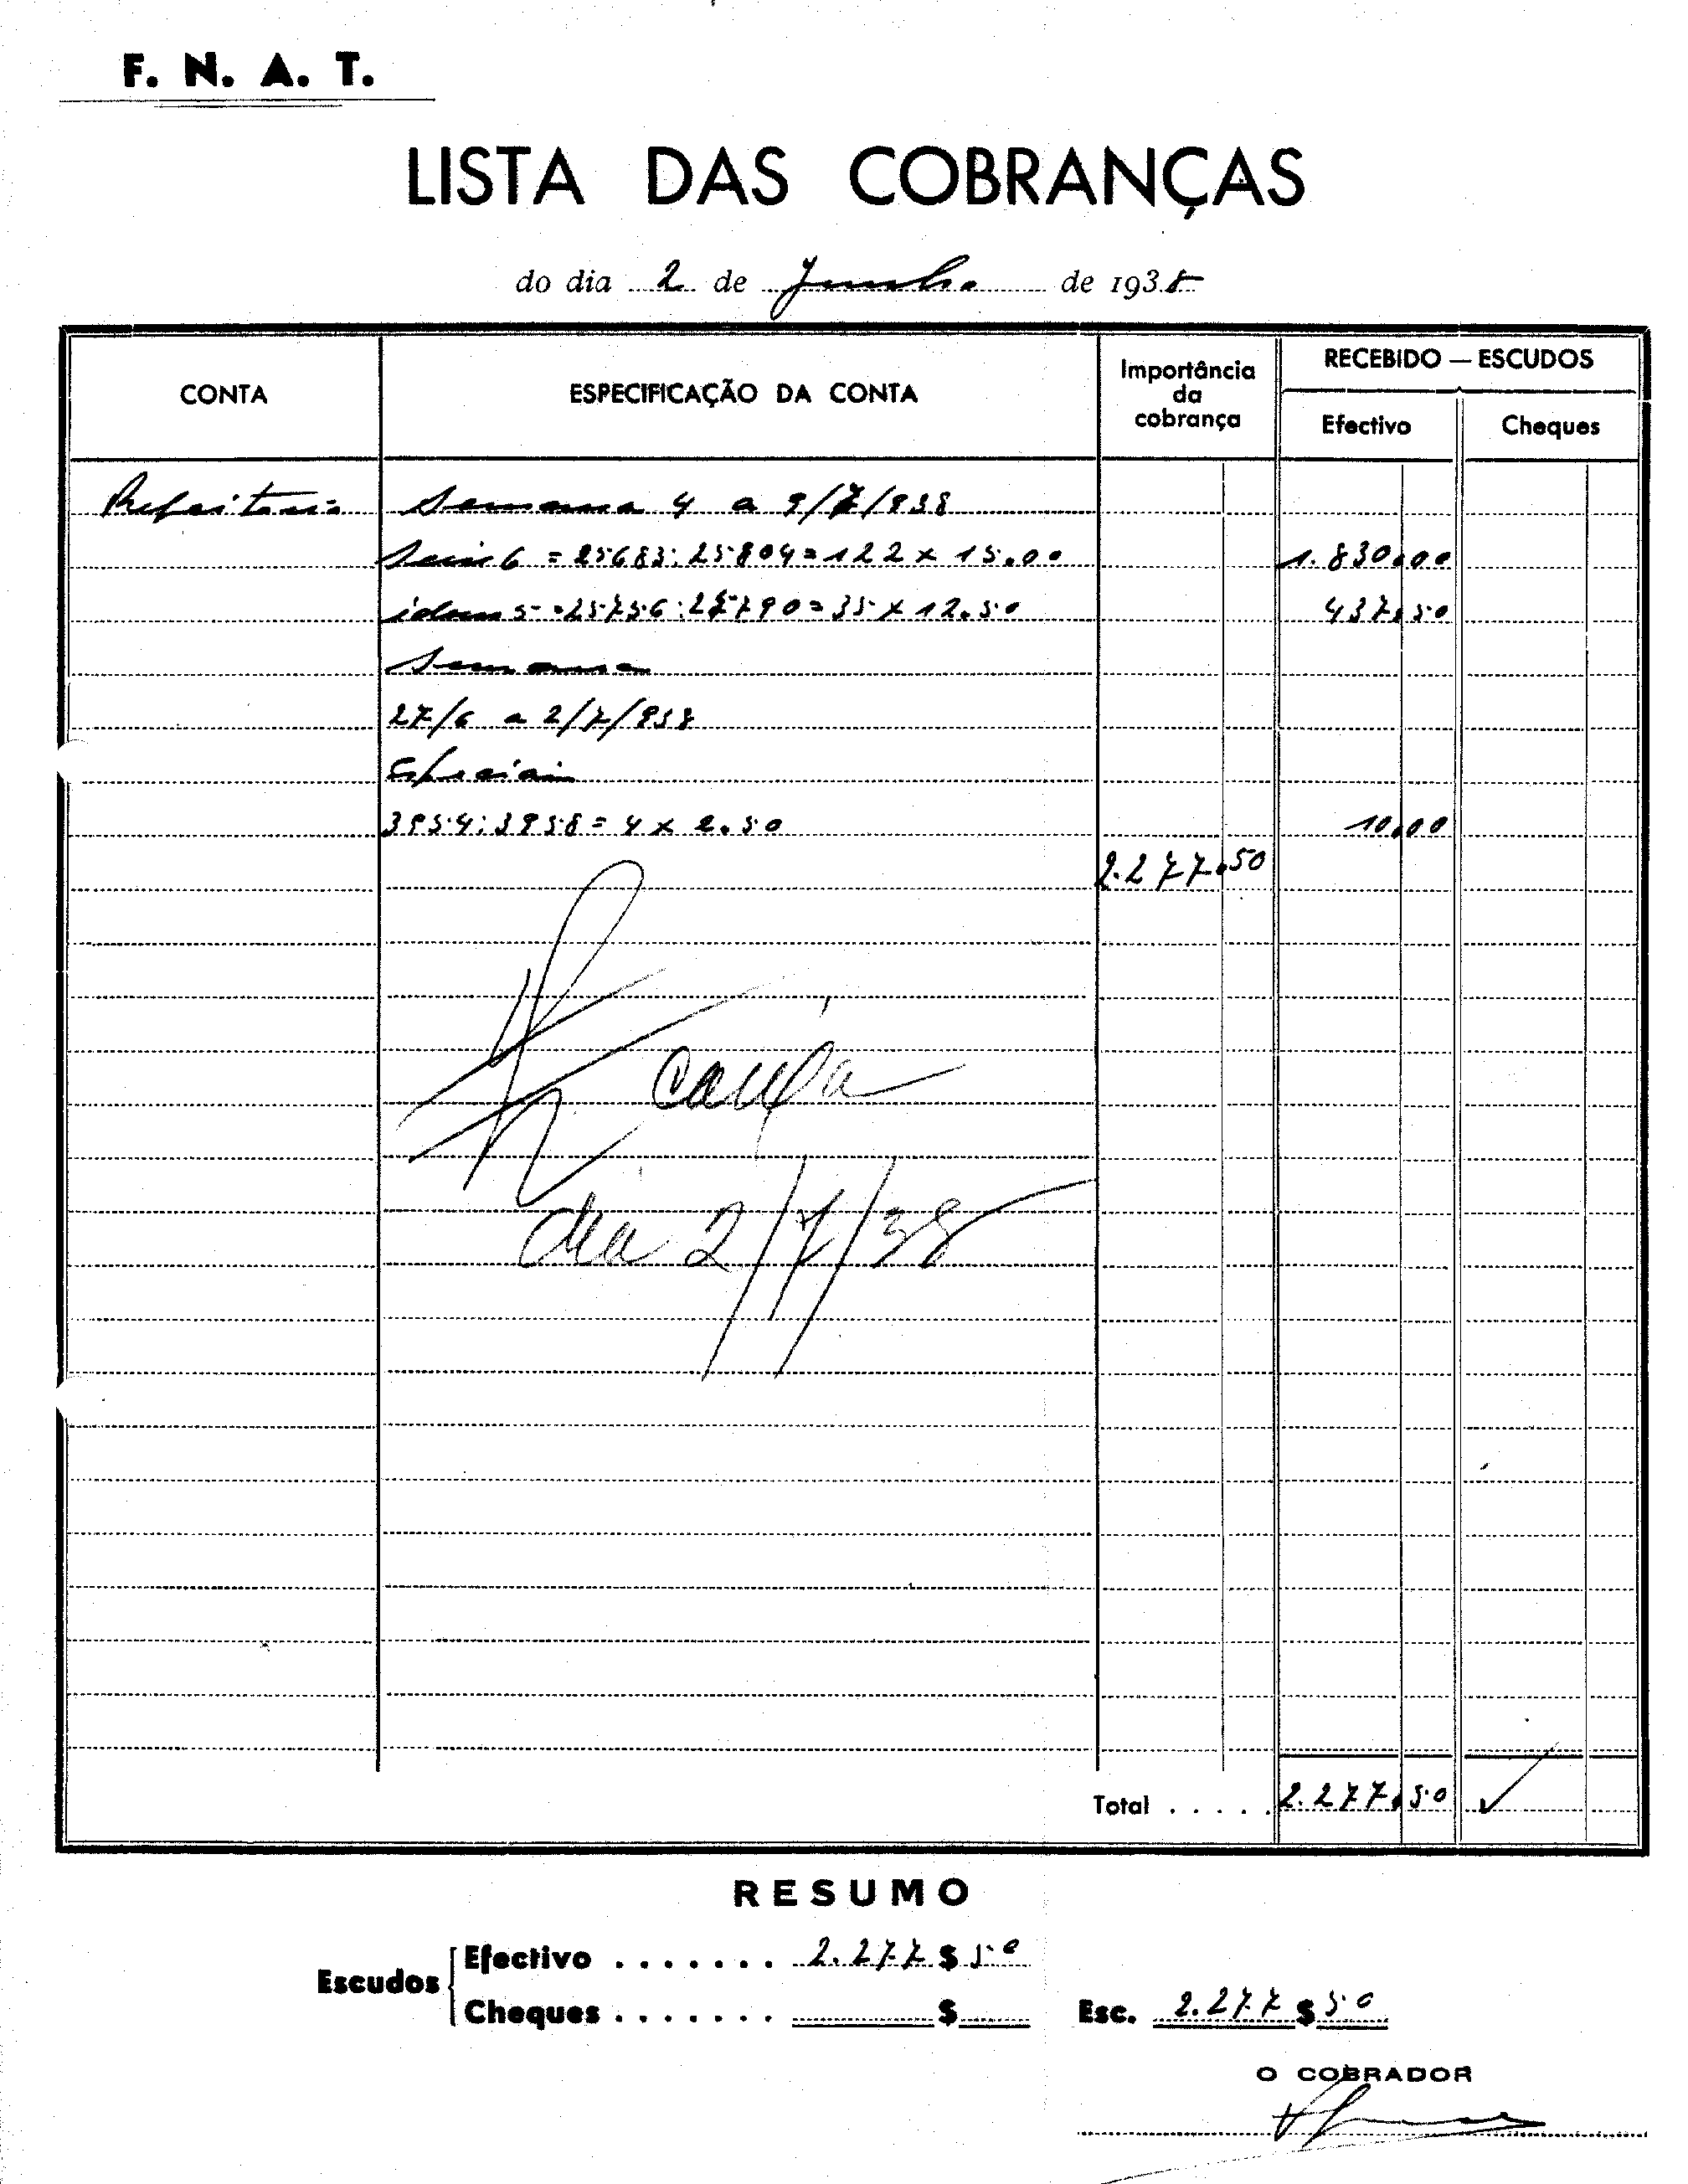 F. N. A. T.
LISTA DAS COBRANÇAS
do dia 2 de Junho de 1938
CONTA ESPECIFICAÇÃO DA CONTA Importância da cobrança RECEBIDO — ESCUDOS
Efectivo Cheques
Refeitorio Semana 4 a 9/7/938
Senis 6 = 25683:25804 = 122 x 15.00 1.830.00
idem 5 = 25756:25790 = 35 x 12.50 437.50
Semana
27/6 a 2/7/938
Especiais
3954:3958 = 4 x 2.50 10.00
2.277.50
caixa
dia 2/7/38
Total . . . . . 2.277.50
RESUMO
Escudos Efectivo . . . . . . . 2.277$50
Cheques . . . . . . . $ Esc. 2.277$50
O COBRADOR